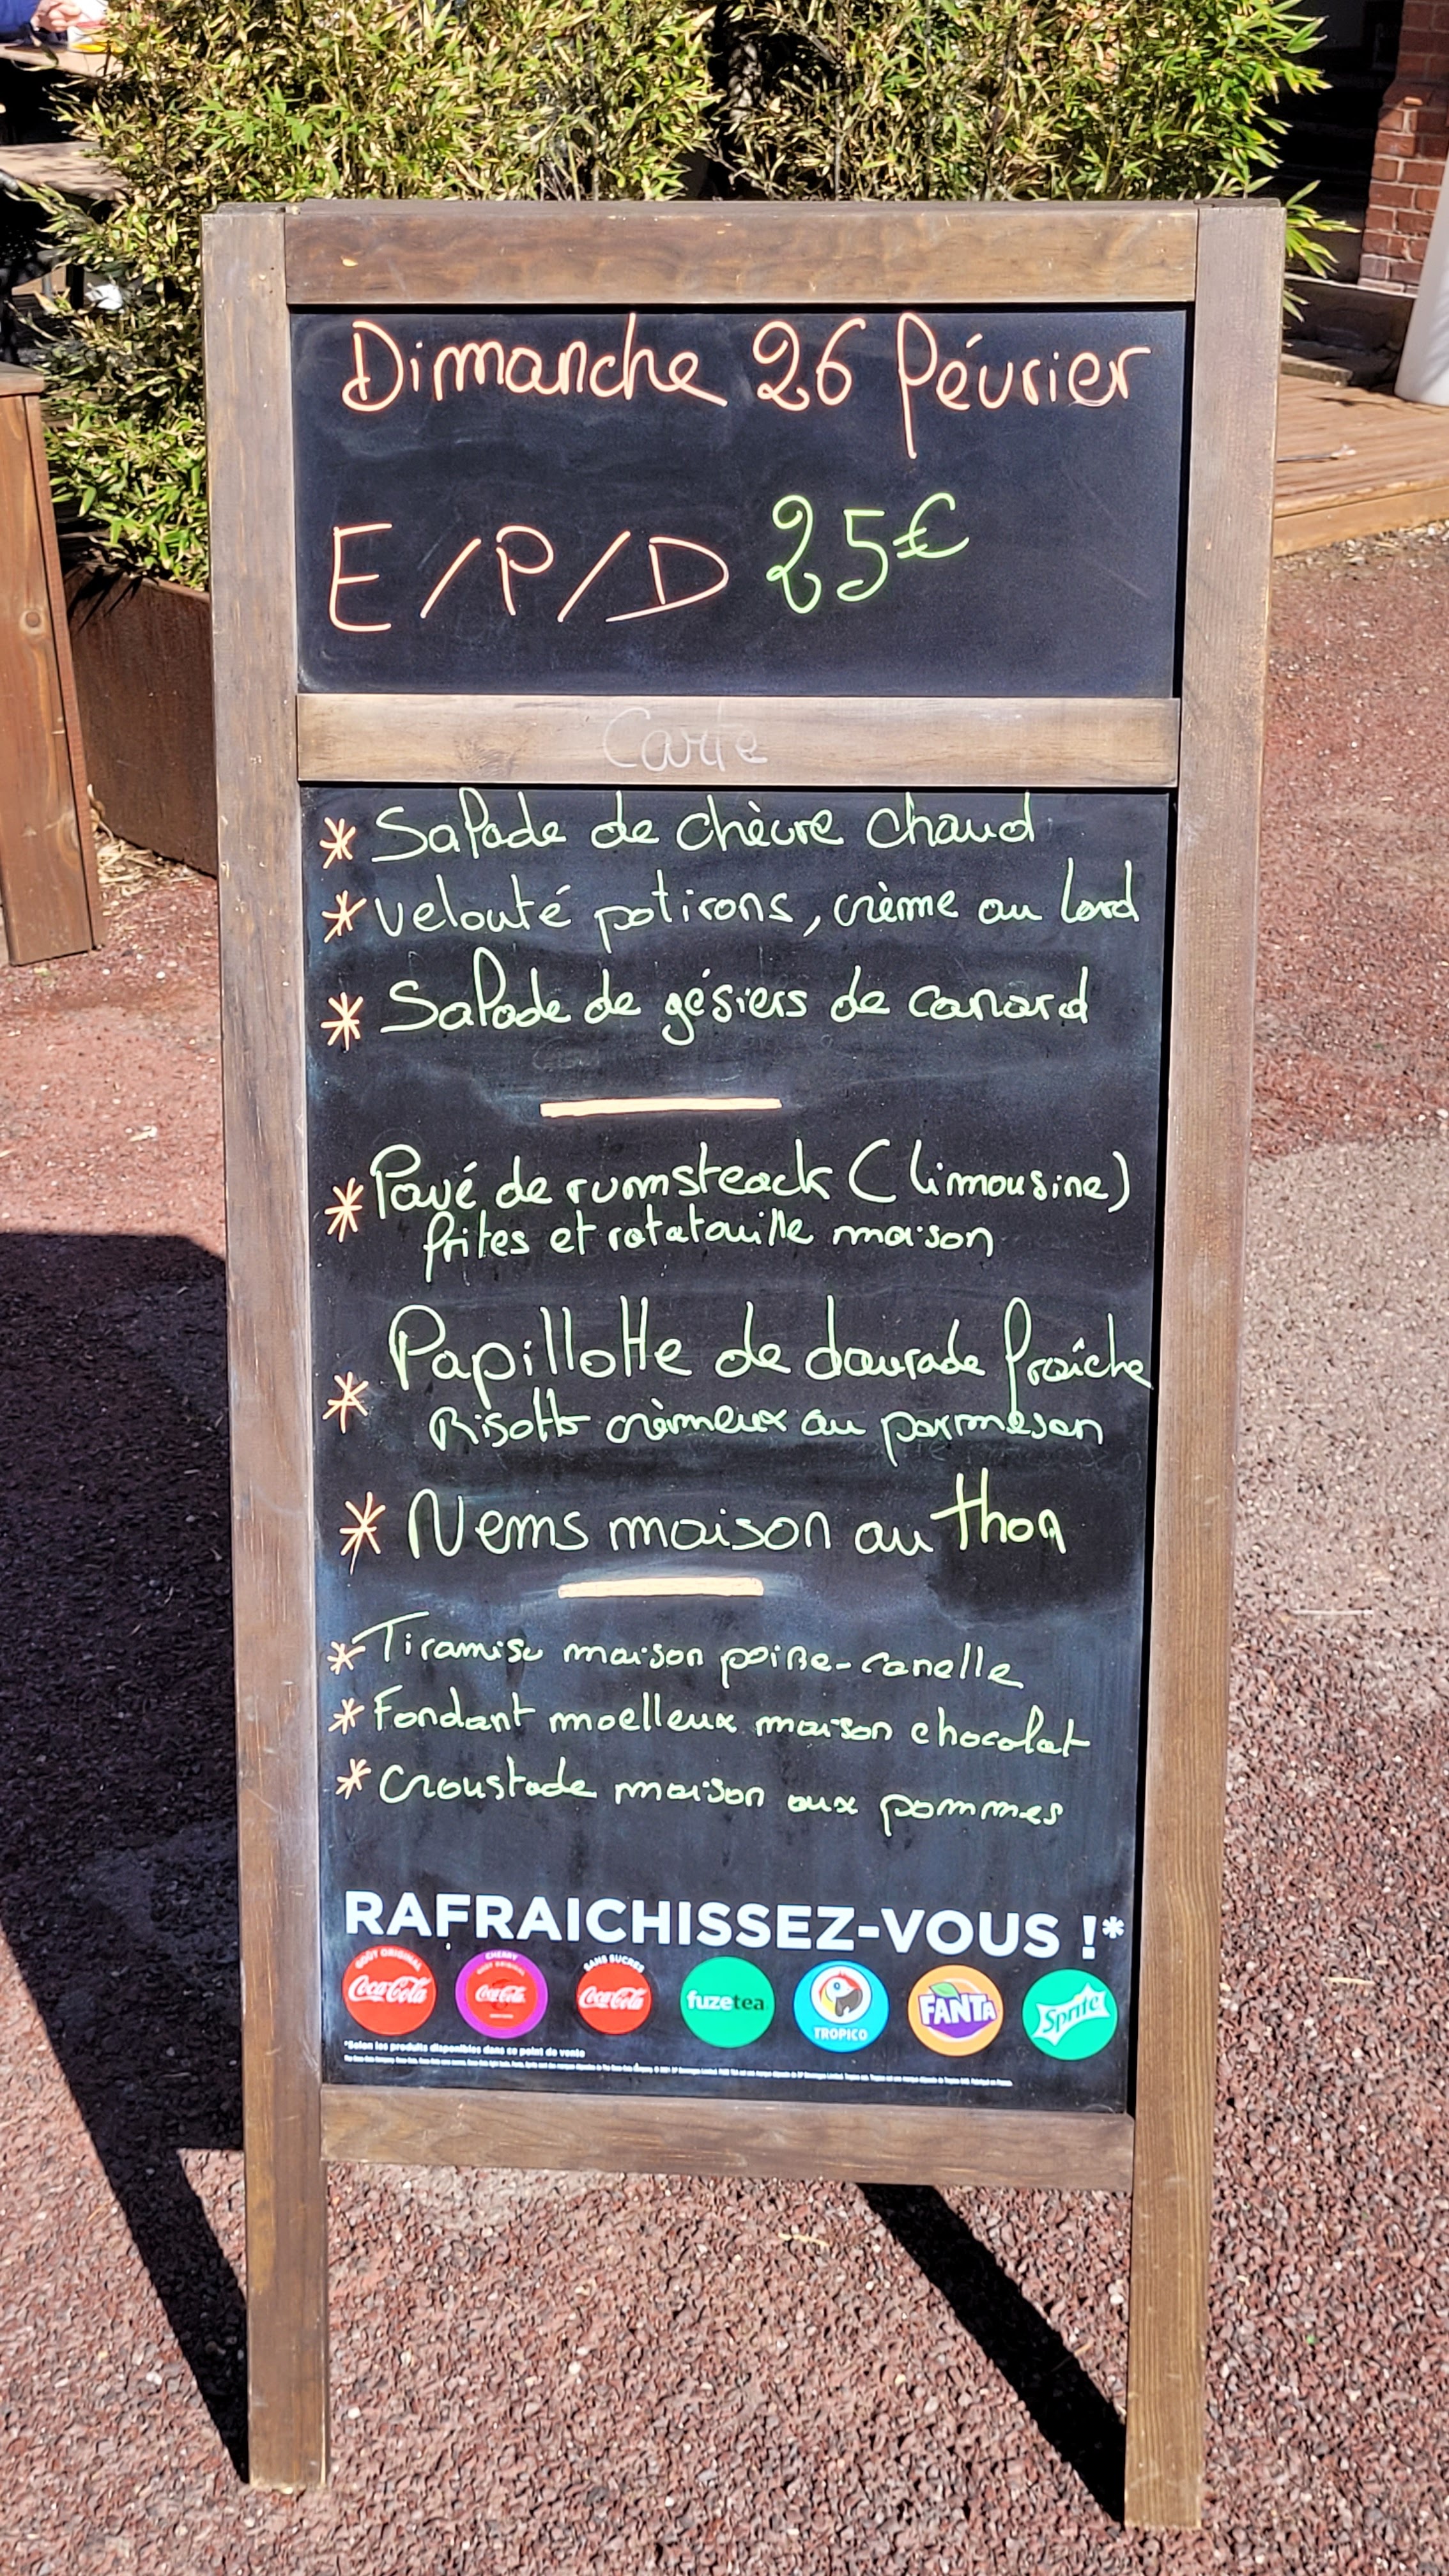 Dimanche 26 février
E/P/D 25€
Carte
* Salade de chèvre chaud
* velouté potirons, crème au lard
* Salade de gésiers de canard
* Pavé de rumsteack (limousine)
frites et ratatouille maison
* Papillotte de daurade fraîche
Risotto crèmeux au parmesan
* Nems maison au thon
* Tiramisu maison poire-canelle
* Fondant moelleux maison chocolat
* Croustade maison aux pommes
RAFRAICHISSEZ-VOUS !*
GOÛT ORIGINAL Coca-Cola
CHERRY GOÛT ORIGINAL Coca-Cola
SANS SUCRES Coca-Cola
fuzetea
TROPICO
FANTA
Sprite
*Selon les produits disponibles dans ce point de vente